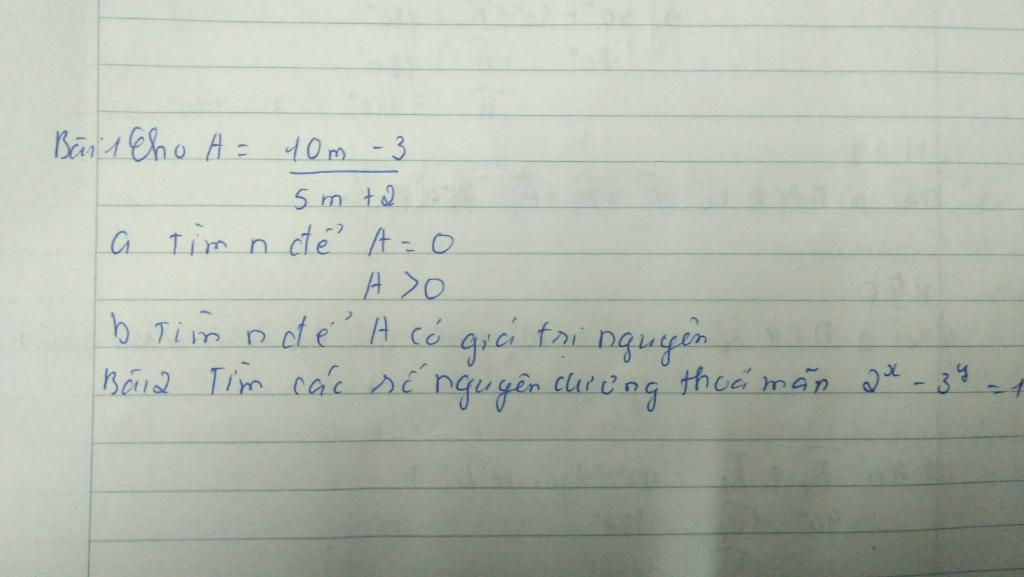 Bài 1 Cho A = 10m - 3
5m + 2
a Tìm n để A = 0
A > 0
b Tìm n để A có giá trị nguyên
Bài 2 Tìm các số nguyên dương thoả mãn 2^x - 3^y = 1